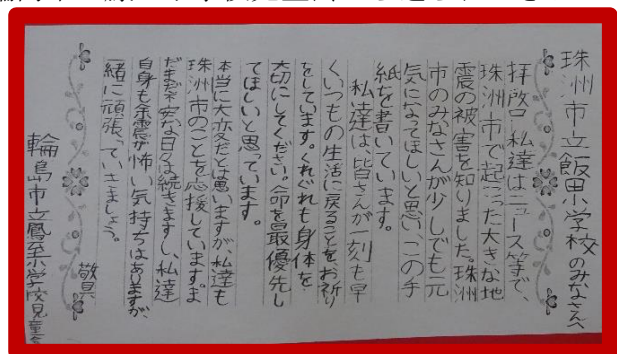 珠洲市立飯田小学校のみなさんへ
拝啓 私達はニュース等で、
珠洲市で起こった大きな地
震の被害を知りました。珠洲
市のみなさんが少しでも元
気になってほしいと思い、この手
紙を書いています。
私達は、皆さんが一刻も早
くいつもの生活に戻ることをお祈り
をしています。くれぐれも身体を
大切にしてください。命を最優先し
てほしいと思っています。
本当に大変だとは思いますが、私達も
珠洲市のことを応援しています。ま
だまだ不安な日々は続きますし、私達
自身も余震が怖い気持ちはありますが、
一緒に頑張っていきましょう。
敬具
輪島市立鳳至小学校児童会